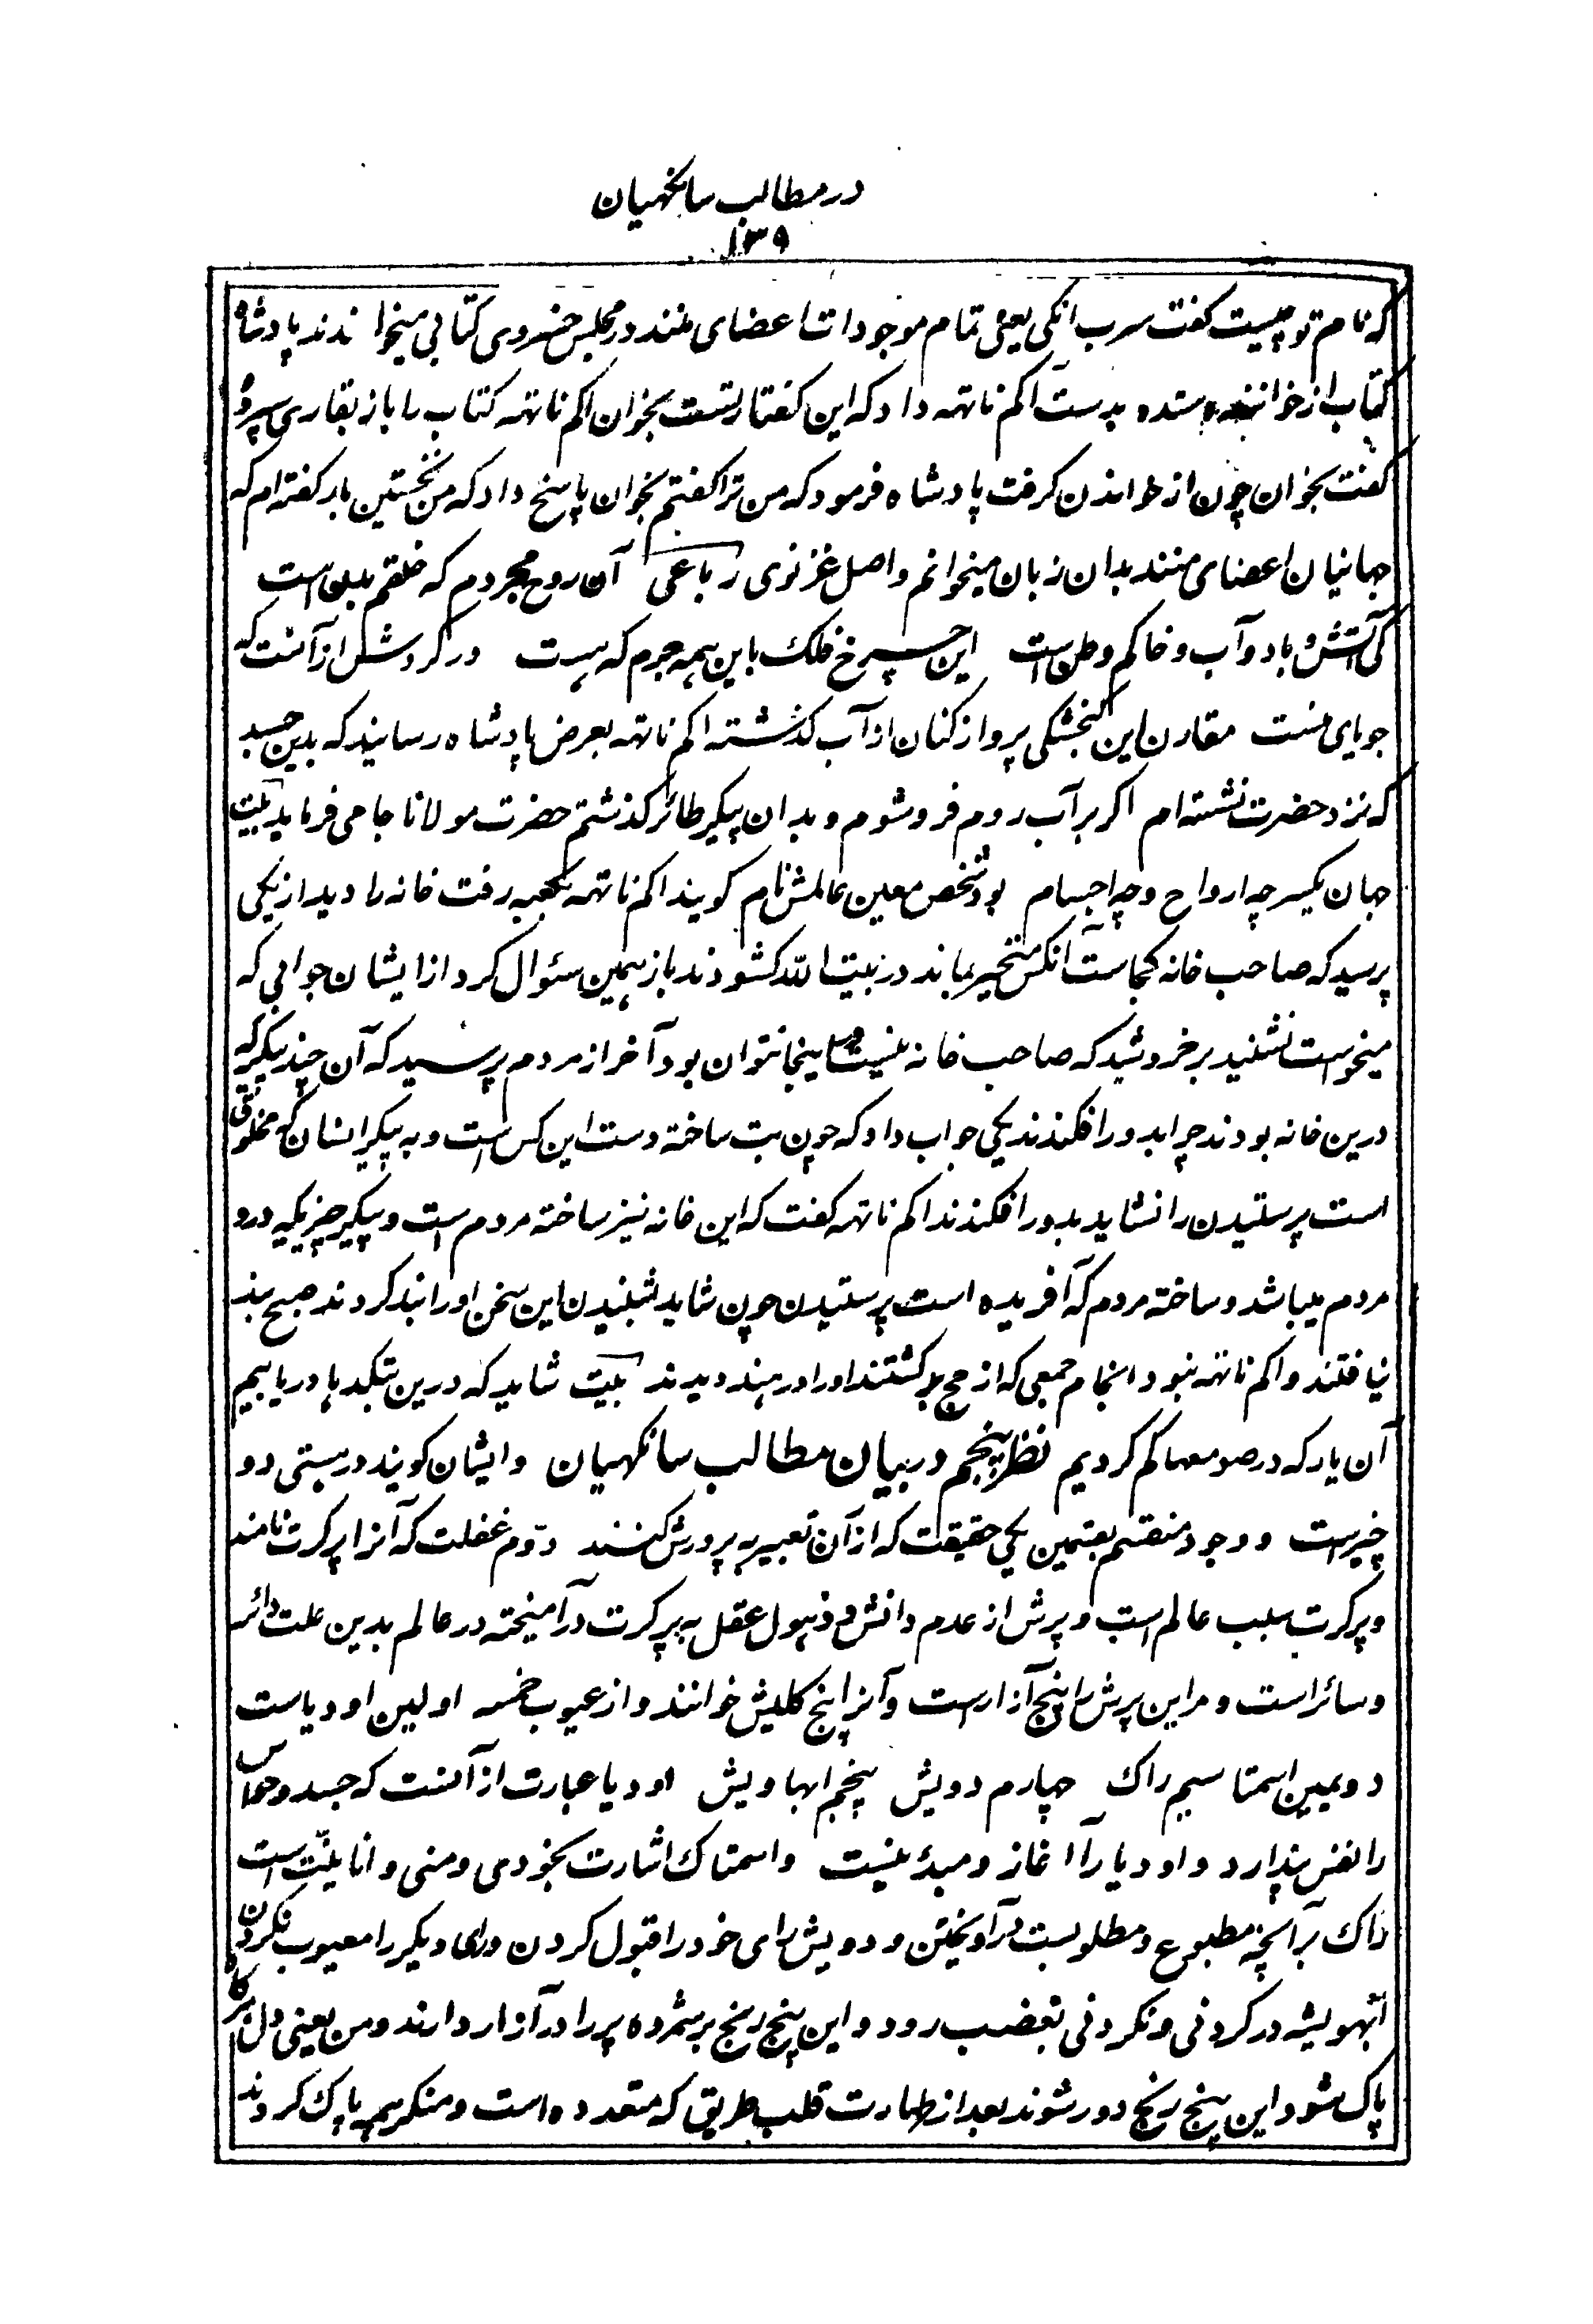 در مطالب سانکهیان
۱۳۹
که نام تو چیست کفت سرب انکی یعنی تمام موجودات اعضای منند در مجلس خسروی کتابی میخواندند پادشاه
کتاب از خواننده ستده بدست اکم ناتهه داد که این کفتار تست بخوان اکم ناتهه کتاب را باز بقاری سپرد و
کفت بخوان چون از خواندن کرفت پادشاه فرمود که من ترا کفتم بخوان پاسخ داد که من نخستین بار کفته ام که
جهانیان اعضای منند بدان زبان میخوانم واصل غزنوی رباعی آن روح مجردم که خلقم بدن است
کی آتش و باد و آب و خاکم وطن است این چرخ فلک باین همه جرم که هست در کردش از آنست که
جویای منست مقارن این کنجشکی پرواز کنان از آب کذشته اکم ناتهه بعرض پادشاه رسانید که بدین جسد
که نزد حضرت نشسته ام اکر بر آب روم فرو شوم و بدان پیکر طائر کذشتم حضرت مولانا جامی فرماید بیت
جهان یکسر چه ارواح و چه اجسام بود شخص معین عالمش نام کویند اکم ناتهه بکعبه رفت خانه را دید از یکی
پرسید که صاحب خانه کجاست آنکس متحیر بماند در بیت الله کشودند باز همین سئوال کرد از ایشان جوابی که
میخواست نشنید برخروشید که صاحب خانه نیست و اینجا نتوان بود آخر از مردم پرسید که آن چند پیکر که
درین خانه بودند چرا بدور افکندند یکی جواب داد که چون بت ساخته دست این کس است و به پیکر انسان که مخلوقی
است پرستیدن را نشاید بدور افکندند اکم ناتهه کفت که این خانه نیز ساخته مردم است و پیکر چیزیکه درو
مردم میباشد و ساخته مردم که آفریده است پرستیدن چون شاید شنیدن این سخن او را بند کردند صبح بند
نیافتند و اکم ناتهه نبود انجام جمعی که از حج برکشتند او را در هند دیدند بیت شاید که درین بتکدها دریابیم
آن یار که در صومعها کم کردیم نظر پنجم در بیان مطالب سانکهیان و ایشان کویند در هستی دو
چیز است و وجود منقسم بقسمین یکی حقیقت که از آن تعبیر به پرورش کنند دوم غفلت که آنرا پرکرت نامند
و پرکرت سبب عالم است و پرش از عدم دانش و ذهول عقل به پرکرت در آمیخته در عالم بدین علت دائر
و سائر است و مر این پرش را پنج آزار است و آنرا پنج کلیش خوانند و از عیوب خمسه اولین اودیاست
دویمین اسمتا سیم راک چهارم دویش پنجم ابهاویش اودیا عبارت از آنست که جسد و حواس
را نفس پندارد و اودیا را آغاز و مبدئ نیست و اسمتاک اشارت بخودی و منی و انانیت است
راک بر آنچه مطبوع و مطلوبست در آویختن و دویش رای خود را قبول کردن ورای دیکر را معیوب نکردن
ابهویشه در کردنی و نکردنی بغضب رود و این پنج رنج برشمرده پر را در آزار دارند و من یعنی دل هرکاه
پاک شود این پنج رنج دور شوند بعد از طهارت قلب طریق که متعدده است و منکر همه پاک کردند